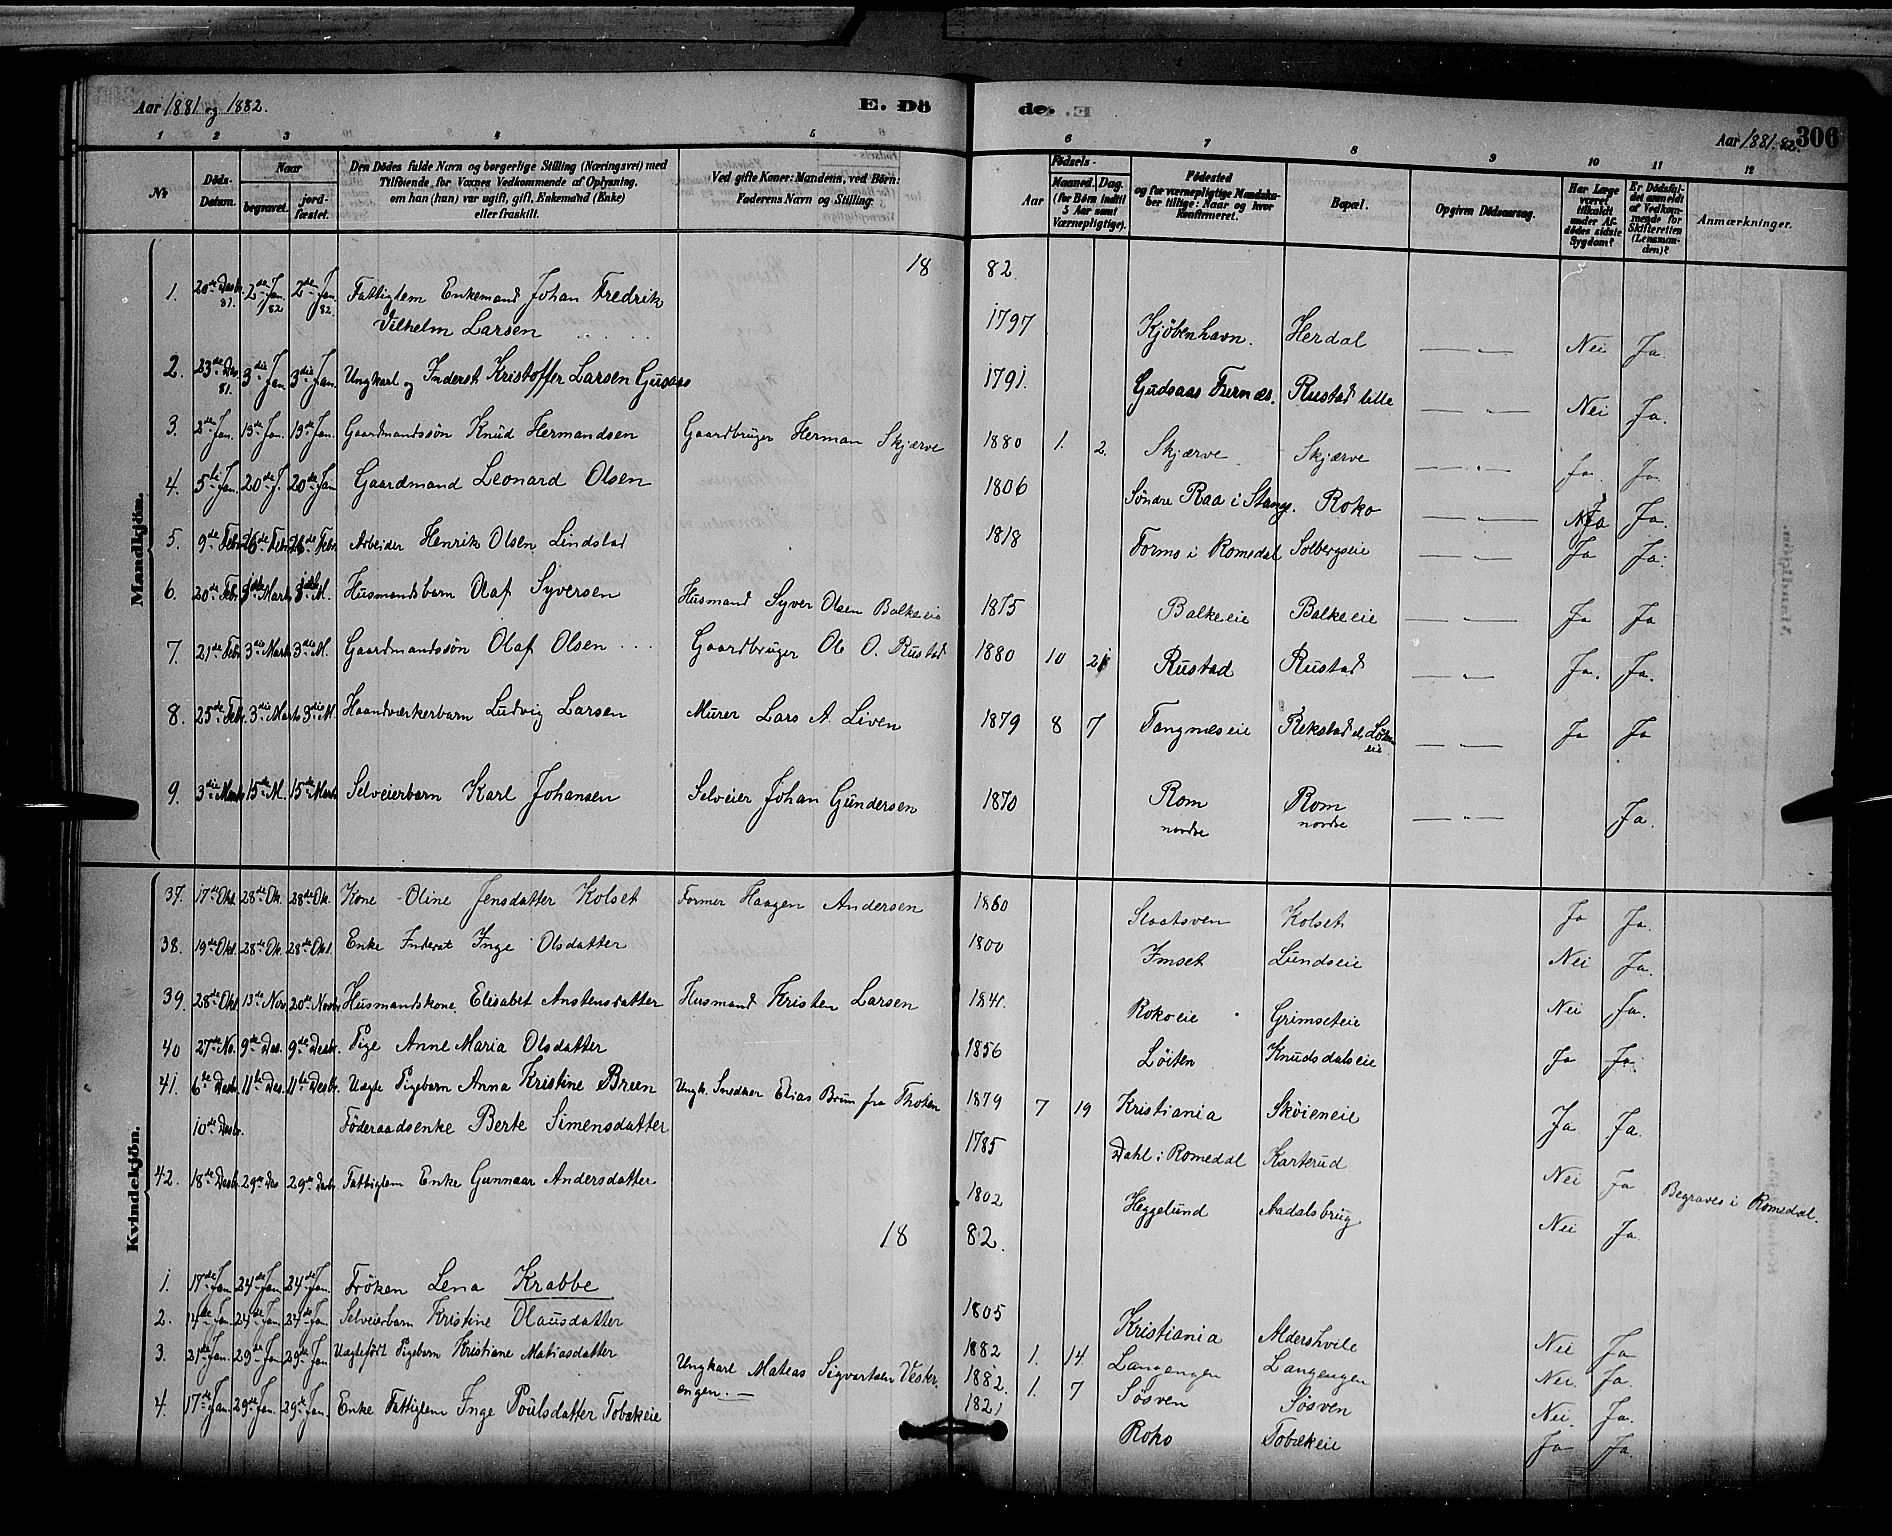 Aar 1881 og 1882.
E. Dö
de.
Aar 1881.82.
306
1 2 3 4 5 6 7 8 9 10 11 12
No
Döds-Datum.
Naar
begravet.
jordfæstet.
Den Dödes fulde Navn og borgerlige Stilling (Næringsvei) med
Tilföiende, for Voxnes Vedkommende af Oplysning,
om han (hun) var ugift, gift, Enkemand (Enke)
eller fraskilt.
Ved gifte Koner: Mandens, ved Börn:
Faderens Navn og Stilling.
Födsels-
Aar
Maaned. Dag.
(for Börn indtil
5 Aar samt
Værnepligtige).
Födested
og for værnepligtige Mandska-
ber tillige: Naar og hvor
Konfirmeret.
Bopæl.
Opgiven Dödsaarsag.
Har Læge
været
tilkaldt
under Af-
dödes sidste
Sygdom?
Er Dödsfal-
det anmeldt
af Vedkom-
mende for
Skifteretten
(Lensman-
den)?
Anmærkninger.
Mandkjön.
18 82.
1. 20de Decbr 81. 2den Jan. 82 2den Jan. 82. Fattiglem Enkemand Johan Fredrik
Vilhelm Larsen 1797 Kjöbenhavn. Herdal — „ — Nei Ja.
2. 23de Dec 81. 3die Jan. 3die Jan. Ungkarl og Inderst Kristoffer Larsen Gusaas 1791. Gudsaas Furnæs. Rustad lille — „ — Nei Ja.
3. 2de Jan. 13de Jan. 13de Jan. Gaardmandssön Knud Hermandsen Gaardbruger Herman Skjærve 1880 1. 2. Skjærve Skjærve — „ — Ja. Ja.
4. 5te Jan. 20de J. 20de Jan Gaardmand Leonard Olsen 1806 Söndre Raa i Stange. Roko — „ — Ja Ja.
5. 9de Febr 26de Febr 26de Febr. Arbeider Henrik Olsen Lindstad 1818 Formo i Romedal Solbergseie — „ — Ja Ja.
6. 20de Febr 3die Marts 3die M. Husmandsbarn Olaf Syversen Husmand Syver Olsen Balkeeie 1875 Balkeeie Balkeeie — „ — Ja Ja
7. 21de Febr 3die Marts 3die M. Gaardmandssön Olaf Olsen Gaardbruger Ole O. Rustad 1880 10 21 Rustad Rustad — „ — Ja. Ja.
8. 25de Febr. 3die Marts 3die M. Haandværkerbarn Ludvig Larsen Murer Lars A. Liven 1879 8 7 Tangnæseie Rekstad — „ — Ja Ja
9. 3die Marts 15de M. 15de Marts. Selveierbarn Karl Johansen Selveier Johan Gundersen 1870 Rom nordre Rom nordre — „ — Ja.
Kvindekjön.
37. 17de Okt. 28de Ok. 28de Ok. Kone Oline Jensdatter Kolset Former Haagen Andersen 1860 Staatsven Kolset Ja Ja.
38. 19de Okt. 28de Ok. 28de Okt. Enke Inderst Inge Olsdatter 1800 Imset Lundseie Nei Ja.
39. 28de Okt. 13de Nov. 20de Novbr Husmandskone Elisabet Anstensdatter Husmand Kristen Larsen 1841. Rokoeie Grimseteie Nei Ja.
40 27de No. 9de Dec. 9de Decbr. Pige Anne Maria Olsdatter 1856 Löiten Knudsdalseie Ja Ja.
41. 6te Decbr. 11te Dec. 11te Decbr. Uægte Pigebarn Anna Kristine Bruun Ungk. Snedker Elias Bruun fra Thoten 1879 7 19 Kristiania Sköieneie Ja Ja.
10de Decbr. Föderaadsenke Berte Simensdatter 1785 Dahl i Romedal Karterud Nei Ja Begraves i Romedal.
42. 18de Decbr 29de Dec 29de Decbr Fattiglem Enke Gunnaar Andersdatter 1802 Heggelund Aadalsbrug Nei Ja
18 82.
1. 17de Jan 24de Jan. 24de Jan. Fröken Lena Krabbe 1805 Kristiania Aldershvile Nei Ja
2. 14de Jan. 24de Jan. 24de Jan Selveierbarn Kristine Olausdatter 1882 1. 14. Langengen Langengen Nei. Ja.
3. 21de Jan 29de Jan 29de Jan Uægtefödt Pigebarn Kristiane Matiasdatter Ungkarl Mateas Sigvartsen Vestrengen. — 1882. 1. 7 Sösven Sösven Nei. Ja.
4. 17de Jan. 29de Jan. 29de Jan. Enke Fattiglem Inge Poulsdatter Tobækeie 1821 Roko Tobækeie Ja Ja.